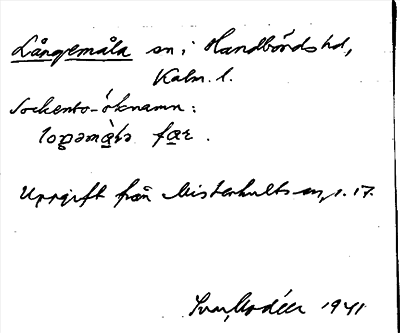 Långemåla sn i Handbörds hd,
Kalm. l.
Sockenbo-öknamn:
fær.
Uppgift från Misterhults sn, s. 17.
Ivar Modéer 1941